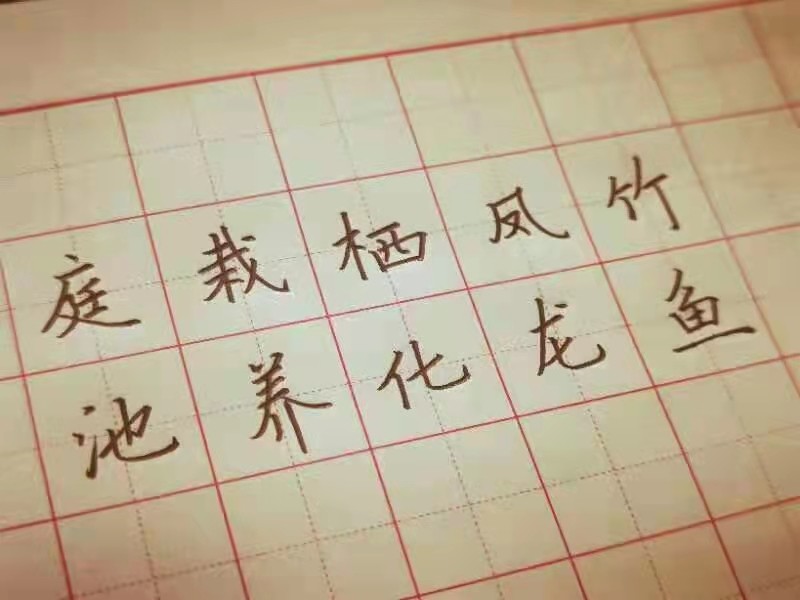 庭栽栖凤竹
池养化龙鱼